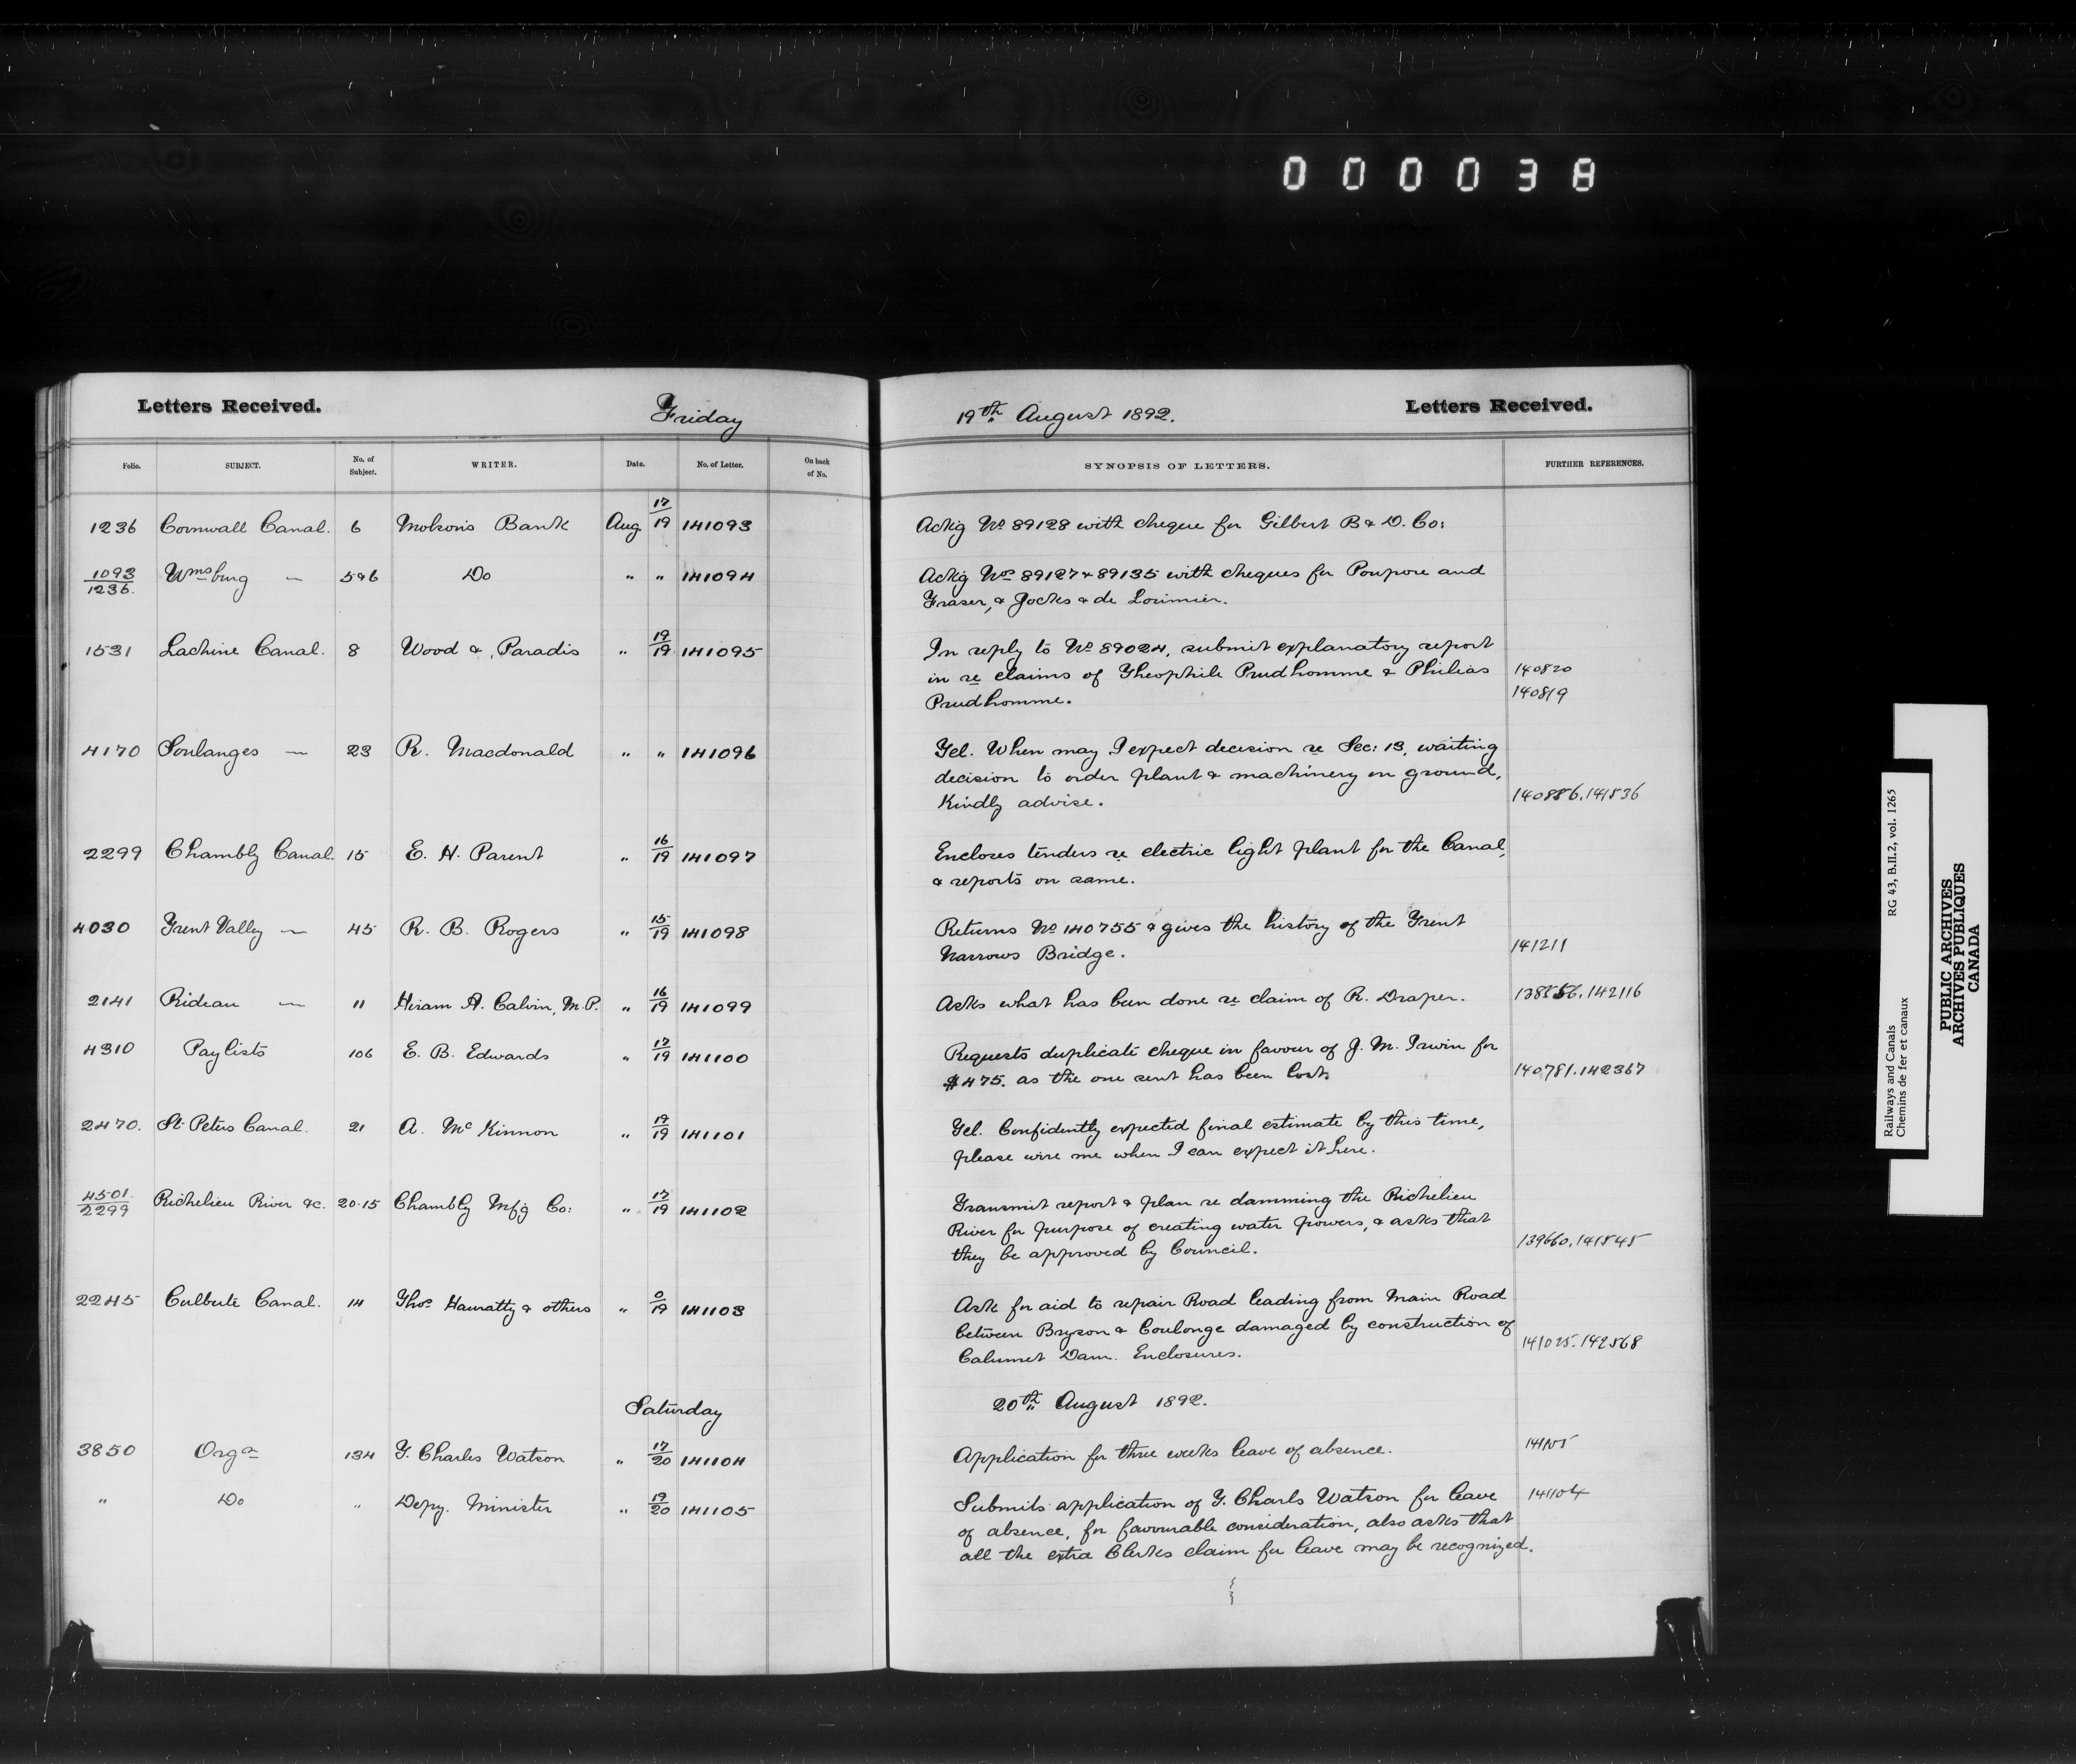 000038
Letters Received. Friday 19th August 1892. Letters Received.
Folio. SUBJECT. No. of Subject. WRITER. Date. No. of Letter. On back of No. SYNOPSIS OF LETTERS. FURTHER REFERENCES.
1236 Cornwall Canal. 6 Molsons Bank Aug. 17/19 141093 Ackg No 89128 with cheque for Gilbert B & D. Co:
1093/1236. Wmsburg — 5&6 Do " " 141094 Ackg Nos 89127 & 89135 with cheques for Poupore and
Fraser, & Jocks & de Lorimier.
1531 Lachine Canal. 8 Wood & Paradis " 19/19 141095 In reply to No 89024, submit explanatory report
in re claims of Theophile Prudhomme & Philias 140820
Prudhomme. 140819
4170 Soulanges — 23 R. Macdonald " " 141096 Tel. When may I expect decision re Sec: 13, waiting
decision to order plant & machinery on ground,
Kindly advise. 140886. 141836
2299 Chambly Canal. 15 E. H. Parent " 16/19 141097 Encloses tenders re electric light plant for the Canal,
& reports on same.
4030 Trent Valley — 45 R. B. Rogers " 15/19 141098 Returns No 140755 & gives the history of the Trent
Narrows Bridge. 141211
2141 Rideau — 11 Hiram A. Calvin, M.P. " 16/19 141099 Asks what has been done re claim of R. Draper. 142116
4310 Paylists 106 E. B. Edwards " 17/19 141100 Requests duplicate cheque in favour of J. M. Irwin for
$475. as the one sent has been lost. 140781. 142367
2470. St. Peters Canal. 21 A. McKinnon " 19/19 141101 Tel. Confidently expected final estimate by this time,
please wire me when I can expect it here.
4501./2299 Richelieu River &c. 20.15 Chambly Mfg Co: " 17/19 141102 Transmit report & plan re damming the Richelieu
River for purpose of creating water powers, & asks that
they be approved by Council. 139660. 141845
2245 Culbute Canal. 14 Thos Hanratty & others " 0/19 141103 Ask for aid to repair Road leading from Main Road
between Bryson & Coulonge damaged by construction of
Calumet Dam. Enclosures. 141025. 142568
Saturday 20th August 1892.
3850 Orgn 134 T. Charles Watson " 17/20 141104 Application for three weeks leave of absence. 141105
" Do " Depy. Minister " 19/20 141105 Submits application of T. Charls Watson for leave 141104
of absence, for favourable consideration, also asks that
all the extra Clerks claim for leave may be recognized.
Railways and Canals RG 43, B.II.2, vol. 1265
Chemins de fer et canaux
PUBLIC ARCHIVES
ARCHIVES PUBLIQUES
CANADA